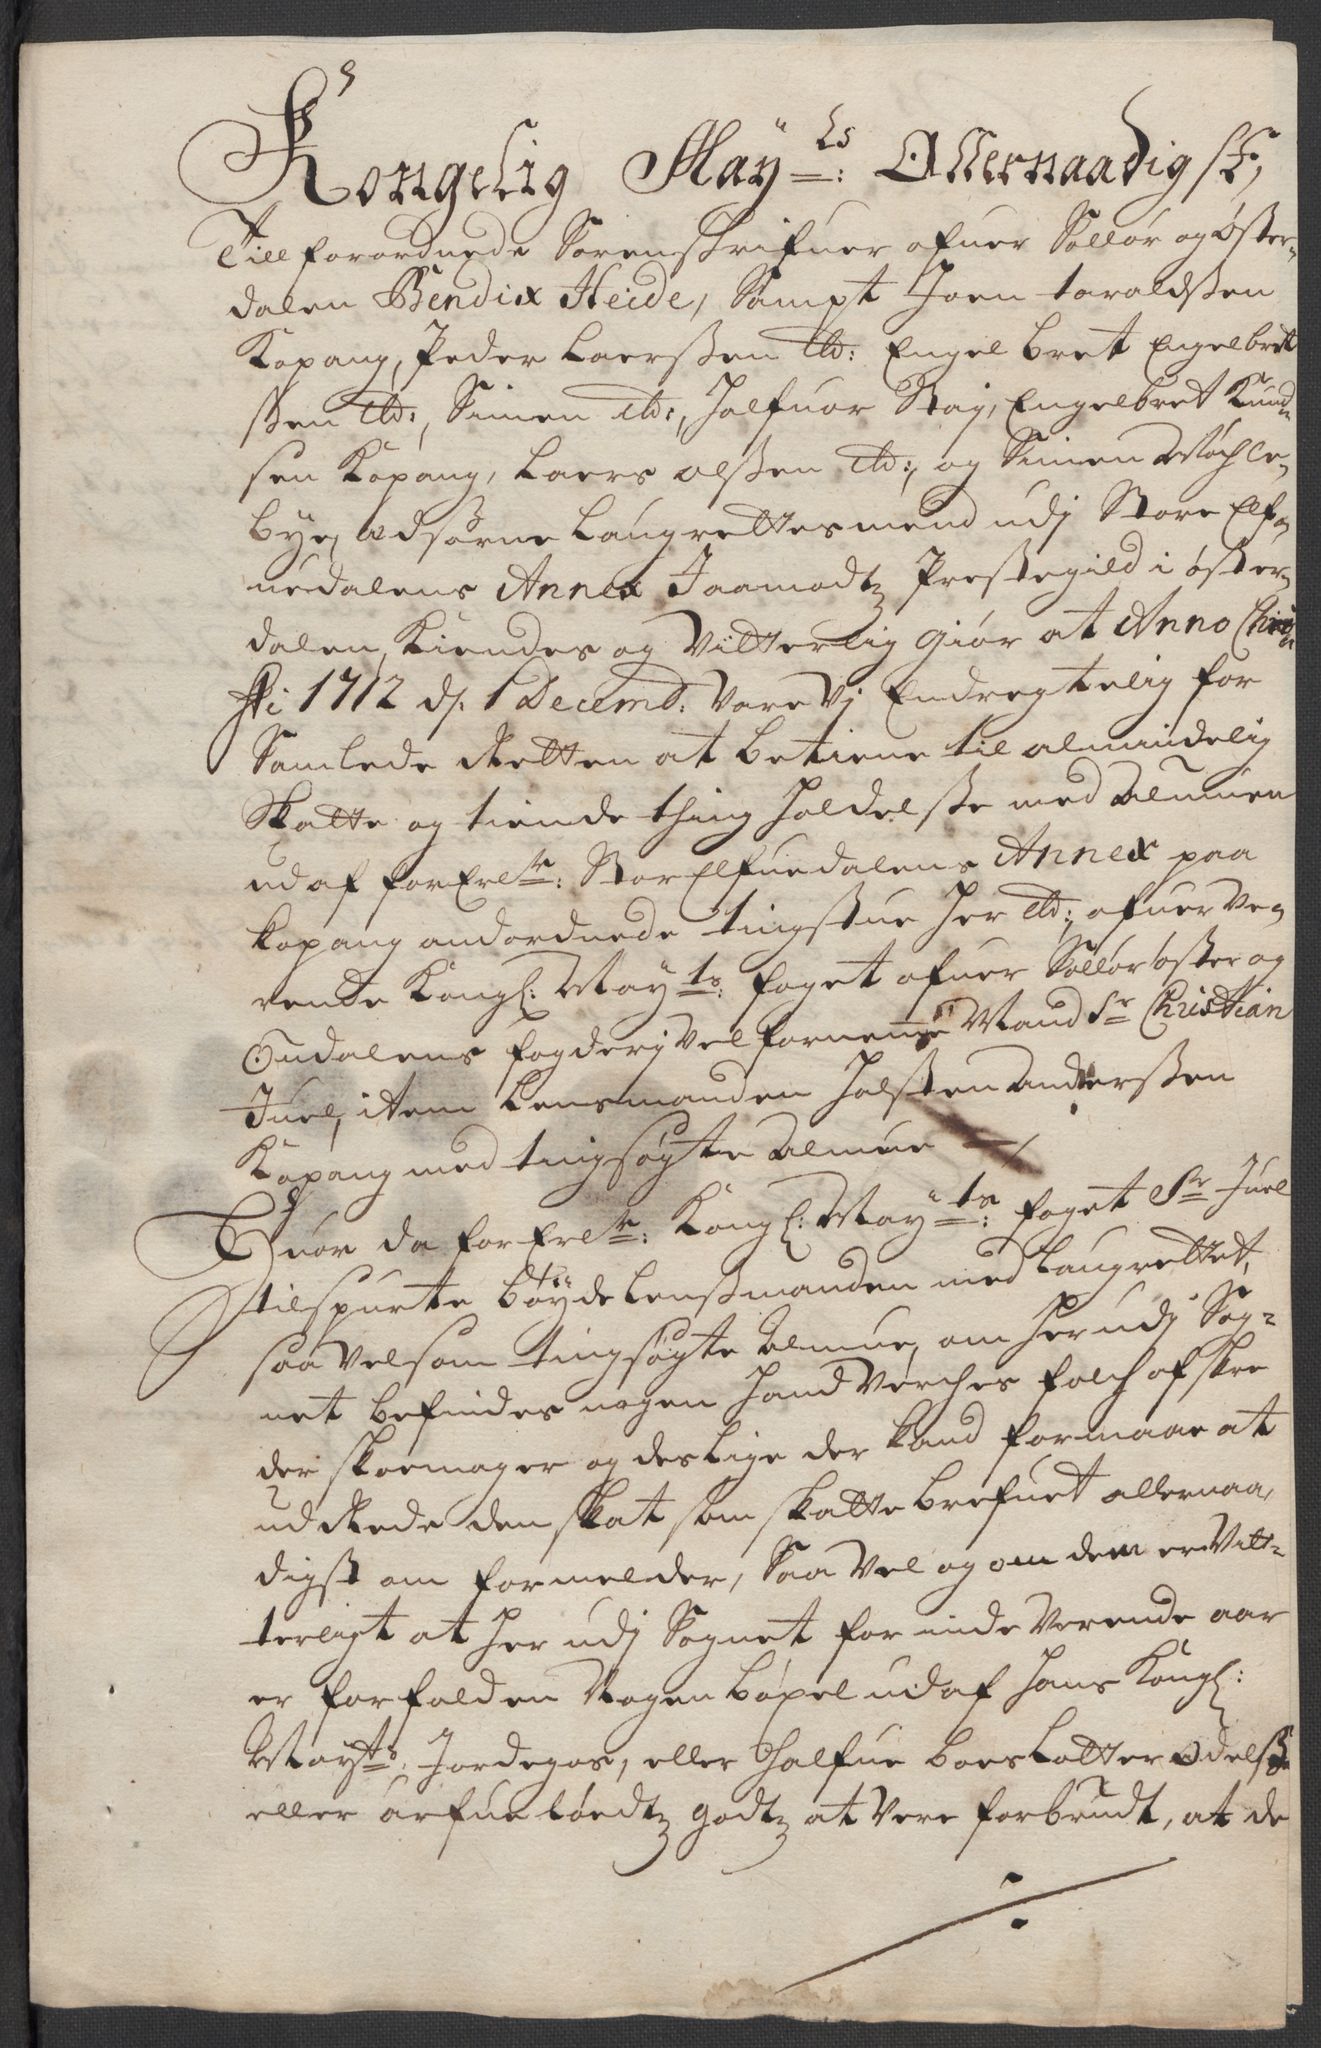 Kongelig May:ts Allernaadigst,
Till forordnede Sorenschrifuer ofuer Sollør og Øster-
dalen Bendix Heide, Sampt Joen taraldßen
Kopang, Peder Laersßen ibd: Engelbret Engelbret
ßen ibd:, Simen ibd:, Halfuor Stai, Engelbret Knud-
sen Kopang, Laers olßen ibd:, og Simen Møchle-
bye, Edsorne Laugrettesmend udj Store Elf-
uedalens Annex Jaamodtz Prestegield i øster-
dalen, Kiendes og Vitterlig giør at Anno Chri-
sti 1712 dj. 1 Decemb: vare vj Endregtelig for
Samlede Retten at betiene til almindelig
Skatte og tiende thing holdelße med Almuen
udaf forbete: Stor Elfuedalens Annex paa
kopang andordnede tingstue her ibd:, ofuerve-
rende Kongl: May:ts foget ofuer Sollør øster og
Oudalens fogderj velforneme Mand Sr Christian
Juel, item Lensmanden Halsten Anderßen
Kopang med tingsøgte Almue
Huor da forbete: Kongl: May:ts: foget Sr Juel
tilspurte bøyde Lenßmanden med Laugrettet,
saavelsom tingsøgte Almue, om her udj Sog-
net befindes nogen Handverches folch af skre
der skoemager og deslige der kand formaae at
ud Rede den skat som skatte brefuet allernaa-
digst om formelder, Saa vel og om dem er vit-
terligt at her udj Sognet for inde verende aar
er forfalden Nogen bøxel udaf Hans Kongl:
May:ts: Jordegos, eller Halfue boeslotter Odelß
eller arfueløedtz godtz at vere forbrudt, at de